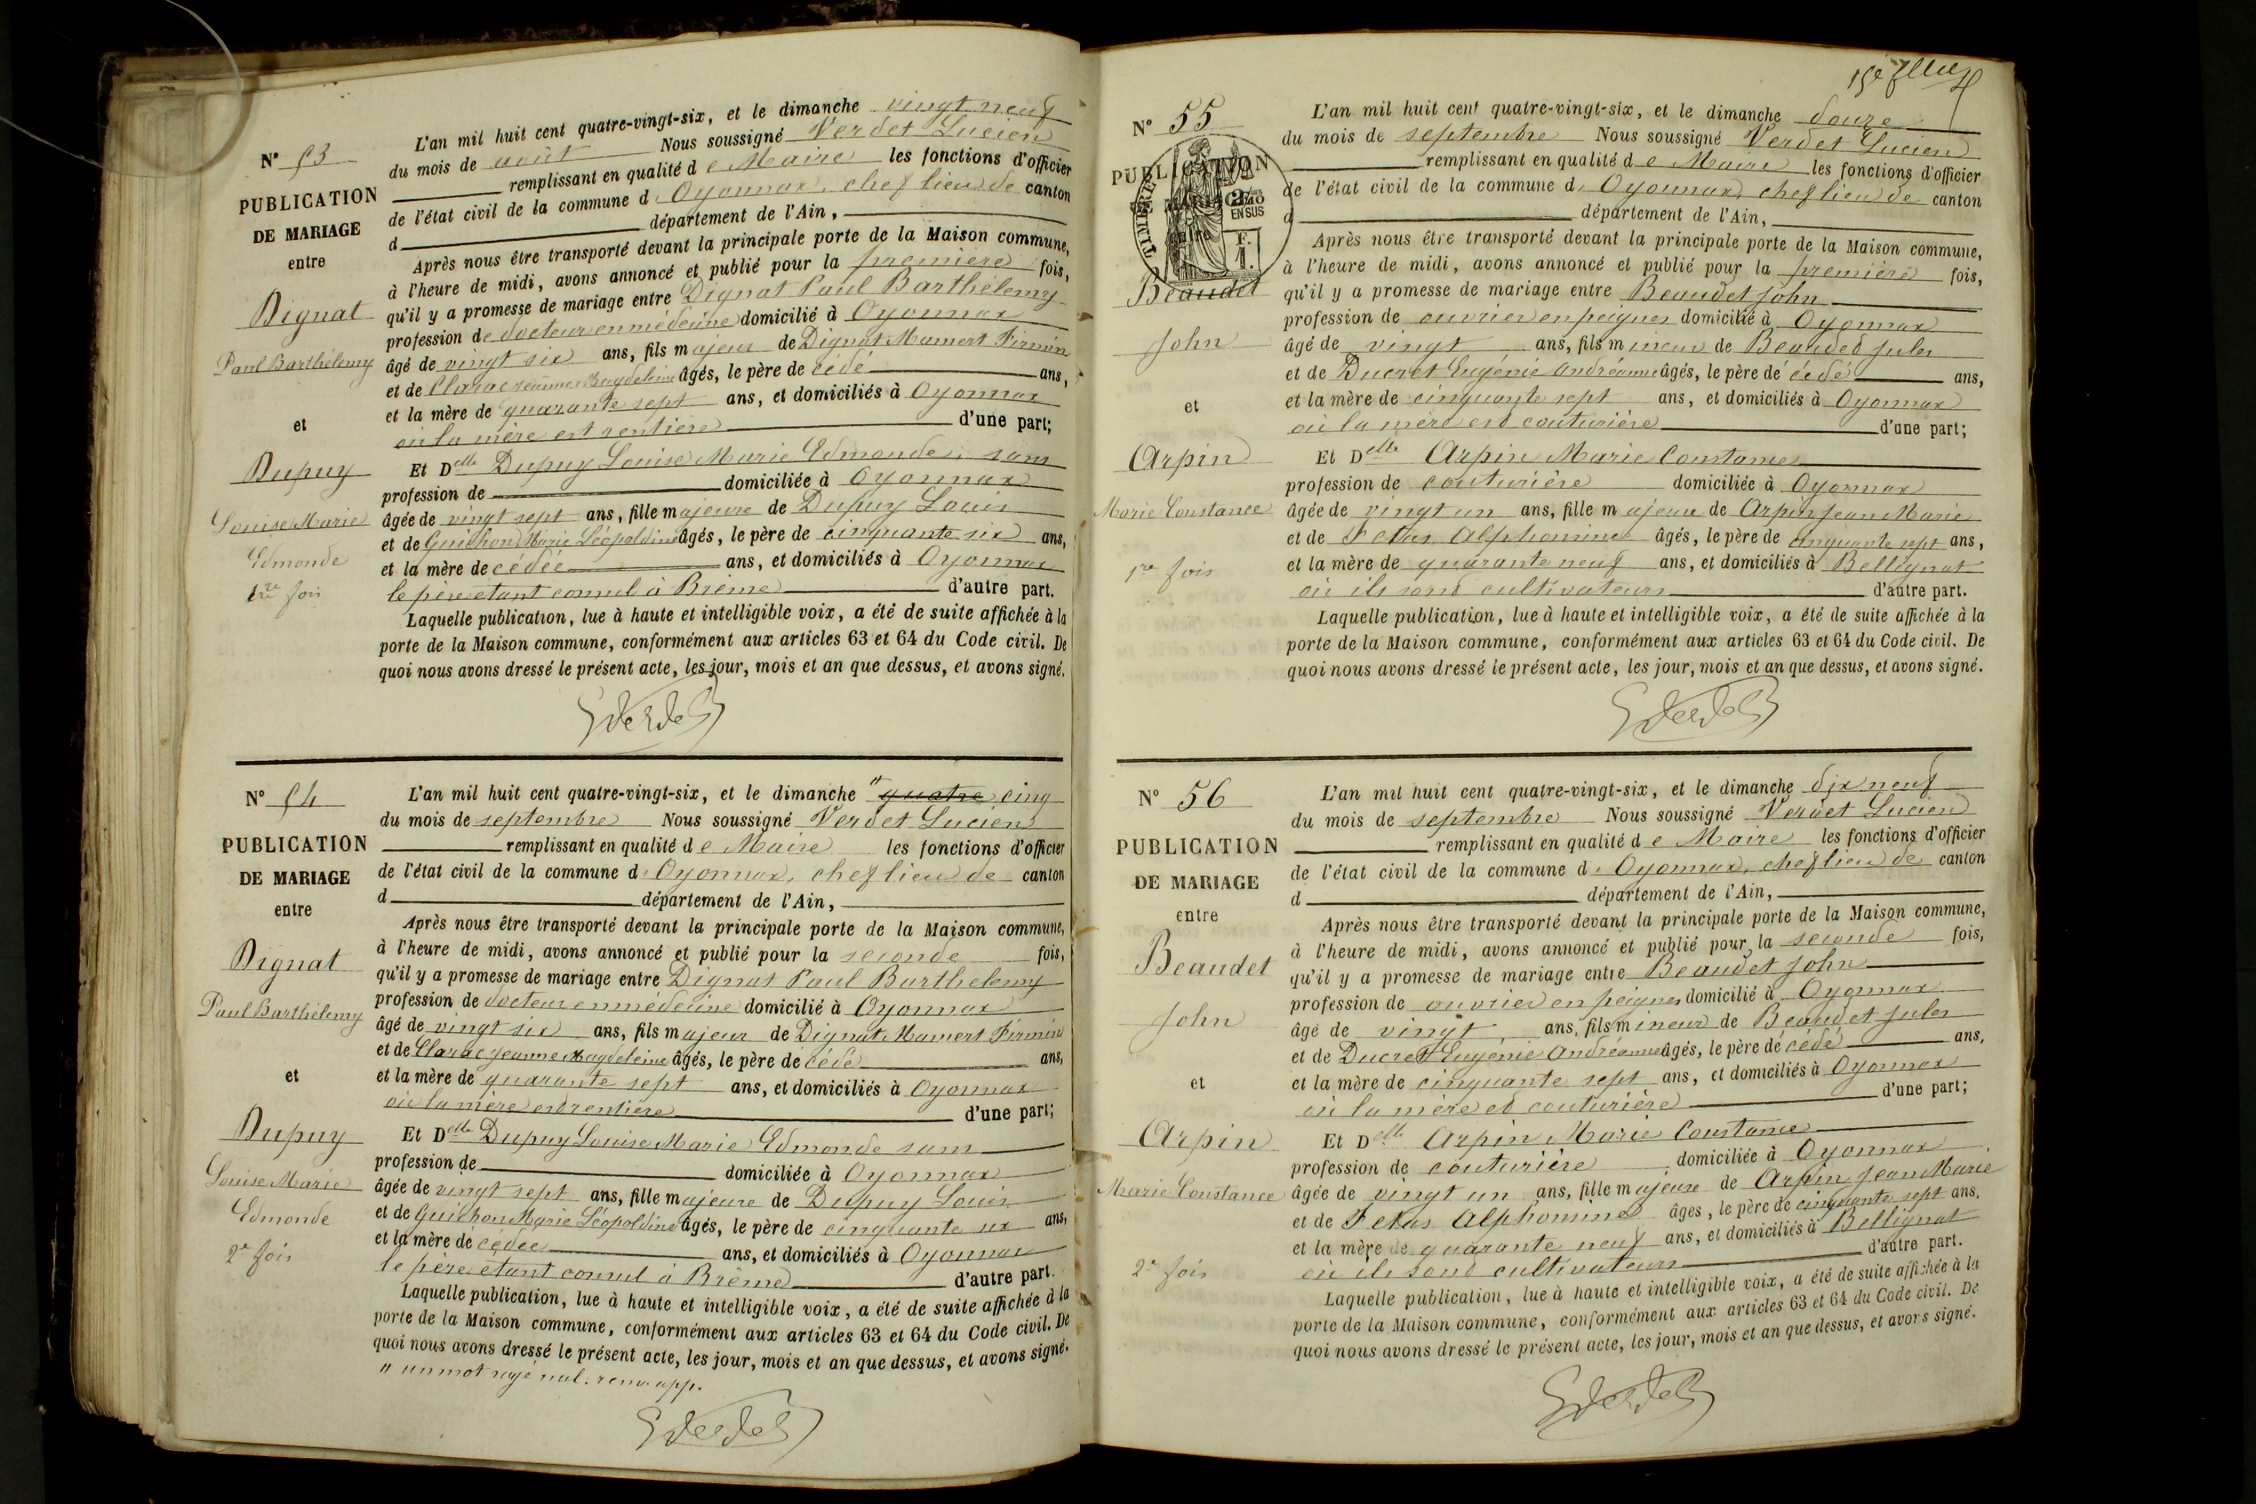 N° 53
PUBLICATION
DE MARIAGE
entre
Dignat
Paul Barthélemy
et
Dupuy
Louise Marie
Edmonde
1re fois
L'an mil huit cent quatre-vingt-six, et le dimanche vingt neuf
du mois de août Nous soussigné Verdet Lucien
remplissant en qualité de Maire les fonctions d'officier
de l'état civil de la commune d'Oyonnax, chef lieu de canton
d département de l'Ain,
Après nous être transporté devant la principale porte de la Maison commune,
à l'heure de midi, avons annoncé et publié pour la première fois,
qu'il y a promesse de mariage entre Dignat Paul Barthélemy
profession de docteur en médecine domicilié à Oyonnax
âgé de vingt six ans, fils majeur de Dignat Mamert Firmin
et de Clarac Jeanne Magdeleine âgés, le père de cédé ans,
et la mère de quarante sept ans, et domiciliés à Oyonnax
où la mère est rentière d'une part;
Et Delle Dupuy Louise Marie Edmonde, sans
profession de domiciliée à Oyonnax
âgée de vingt sept ans, fille majeure de Dupuy Louis
et de Guichon Marie Léopoldine âgés, le père de cinquante six ans,
et la mère de cédée ans, et domiciliés à Oyonnax
le père étant consul à Brême d'autre part.
Laquelle publication, lue à haute et intelligible voix, a été de suite affichée à la
porte de la Maison commune, conformément aux articles 63 et 64 du Code civil. De
quoi nous avons dressé le présent acte, les jour, mois et an que dessus, et avons signé.
LVerdet
N° 54
PUBLICATION
DE MARIAGE
entre
Dignat
Paul Barthélemy
et
Dupuy
Louise Marie
Edmonde
2e fois
L'an mil huit cent quatre-vingt-six, et le dimanche " quatre cinq
du mois de septembre Nous soussigné Verdet Lucien
remplissant en qualité de Maire les fonctions d'officier
de l'état civil de la commune d'Oyonnax, chef lieu de canton
d département de l'Ain,
Après nous être transporté devant la principale porte de la Maison commune,
à l'heure de midi, avons annoncé et publié pour la seconde fois,
qu'il y a promesse de mariage entre Dignat Paul Barthelemy
profession de docteur en médecine domicilié à Oyonnax
âgé de vingt six ans, fils majeur de Dignat Mamert Firmin
et de Clarac Jeanne Magdeleine âgés, le père de cédé ans,
et la mère de quarante sept ans, et domiciliés à Oyonnax
où la mère est rentière d'une part;
Et Delle Dupuy Louise Marie Edmonde sans
profession de domiciliée à Oyonnax
âgée de vingt sept ans, fille majeure de Dupuy Louis
et de Guichon Marie Léopoldine âgés, le père de cinquante six ans,
et la mère de cédée ans, et domiciliés à Oyonnax
le père étant consul à Brême d'autre part.
Laquelle publication, lue à haute et intelligible voix, a été de suite affichée à la
porte de la Maison commune, conformément aux articles 63 et 64 du Code civil. De
quoi nous avons dressé le présent acte, les jour, mois et an que dessus, et avons signé.
" un mot rayé nul. renv. app.
LVerdet
15e
N° 55
PUBLICATION
DE MARIAGE
TIMBRE
2/10
EN SUS
F.
1.
Beaudet
John
et
Arpin
Marie Constance
1re fois
L'an mil huit cent quatre-vingt-six, et le dimanche douze
du mois de septembre Nous soussigné Verdet Lucien
remplissant en qualité de Maire les fonctions d'officier
de l'état civil de la commune d'Oyonnax, chef lieu de canton
d département de l'Ain,
Après nous être transporté devant la principale porte de la Maison commune,
à l'heure de midi, avons annoncé et publié pour la première fois,
qu'il y a promesse de mariage entre Beaudet John
profession de ouvrier en peignes domicilié à Oyonnax
âgé de vingt ans, fils mineur de Beaudet Jules
et de Ducret Eugénie Andréanne âgés, le père de cédé ans,
et la mère de cinquante sept ans, et domiciliés à Oyonnax
où la mère est couturière d'une part;
Et Delle Arpin Marie Constance
profession de couturière domiciliée à Oyonnax
âgée de vingt un ans, fille majeure de Arpin Jean Marie
et de Fetas Alphonsine âgés, le père de cinquante sept ans,
et la mère de quarante neuf ans, et domiciliés à Bellignat
où ils sont cultivateurs d'autre part.
Laquelle publication, lue à haute et intelligible voix, a été de suite affichée à la
porte de la Maison commune, conformément aux articles 63 et 64 du Code civil. De
quoi nous avons dressé le présent acte, les jour, mois et an que dessus, et avons signé.
LVerdet
N° 56
PUBLICATION
DE MARIAGE
entre
Beaudet
John
et
Arpin
Marie Constance
2e fois
L'an mil huit cent quatre-vingt-six, et le dimanche dix neuf
du mois de septembre Nous soussigné Verdet Lucien
remplissant en qualité de Maire les fonctions d'officier
de l'état civil de la commune d'Oyonnax, chef lieu de canton
d département de l'Ain,
Après nous être transporté devant la principale porte de la Maison commune,
à l'heure de midi, avons annoncé et publié pour la seconde fois,
qu'il y a promesse de mariage entre Beaudet John
profession de ouvrier en peignes domicilié à Oyonnax
âgé de vingt ans, fils mineur de Beaudet Jules
et de Ducret Eugénie Andréanne âgés, le père de cédé ans,
et la mère de cinquante sept ans, et domiciliés à Oyonnax
où la mère est couturière d'une part;
Et Delle Arpin Marie Constance
profession de couturière domiciliée à Oyonnax
âgée de vingt un ans, fille majeure de Arpin Jean Marie
et de Fetas Alphonsine âgés, le père de cinquante sept ans,
et la mère de quarante neuf ans, et domiciliés à Bellignat
où ils sont cultivateurs d'autre part.
Laquelle publication, lue à haute et intelligible voix, a été de suite affichée à la
porte de la Maison commune, conformément aux articles 63 et 64 du Code civil. De
quoi nous avons dressé le présent acte, les jour, mois et an que dessus, et avons signé.
LVerdet